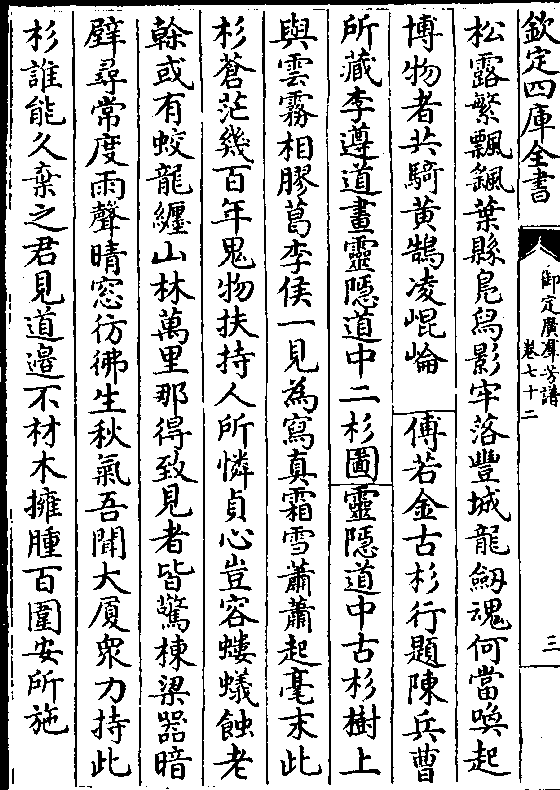 欽定四庫全書
御定廣羣芳譜
卷七十二
三
松露繁飄飄葉縣鳬舄影牢落豐城龍劒魂何當喚起
博物者共騎黄鵠凌崐崘 傅若金古杉行題陳兵曹
所藏李遵道畫靈隱道中二杉圖靈隱道中古杉樹上
與雲霧相膠葛李侯一見為寫真霜雪蕭蕭起毫末此
杉蒼茫幾百年鬼物扶持人所憐貞心豈容螻蟻蝕老
榦或有蛟龍纒山林萬里那得致見者皆驚棟梁器暗
壁尋常度雨聲晴窓彷彿生秋氣吾聞大厦衆力持此
杉誰能久棄之君見道邉不材木擁腫百圍安所施